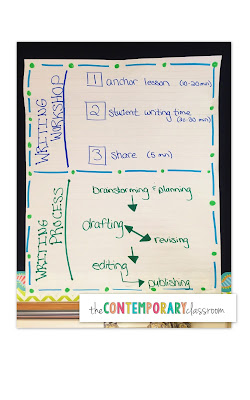 WRITING WORKSHOP
1 anchor lesson (10-20 min)
2 student writing time
(20-30 min)
3 share (5 min)
WRITING PROCESS
brainstorming + planning
drafting
revising
editing
publishing
the CONTEMPORARY classroom